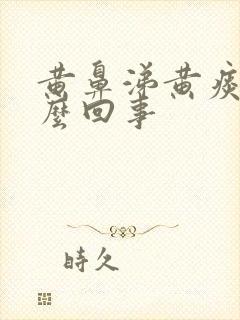 黄鼻涕黄痰
麼回事
時久